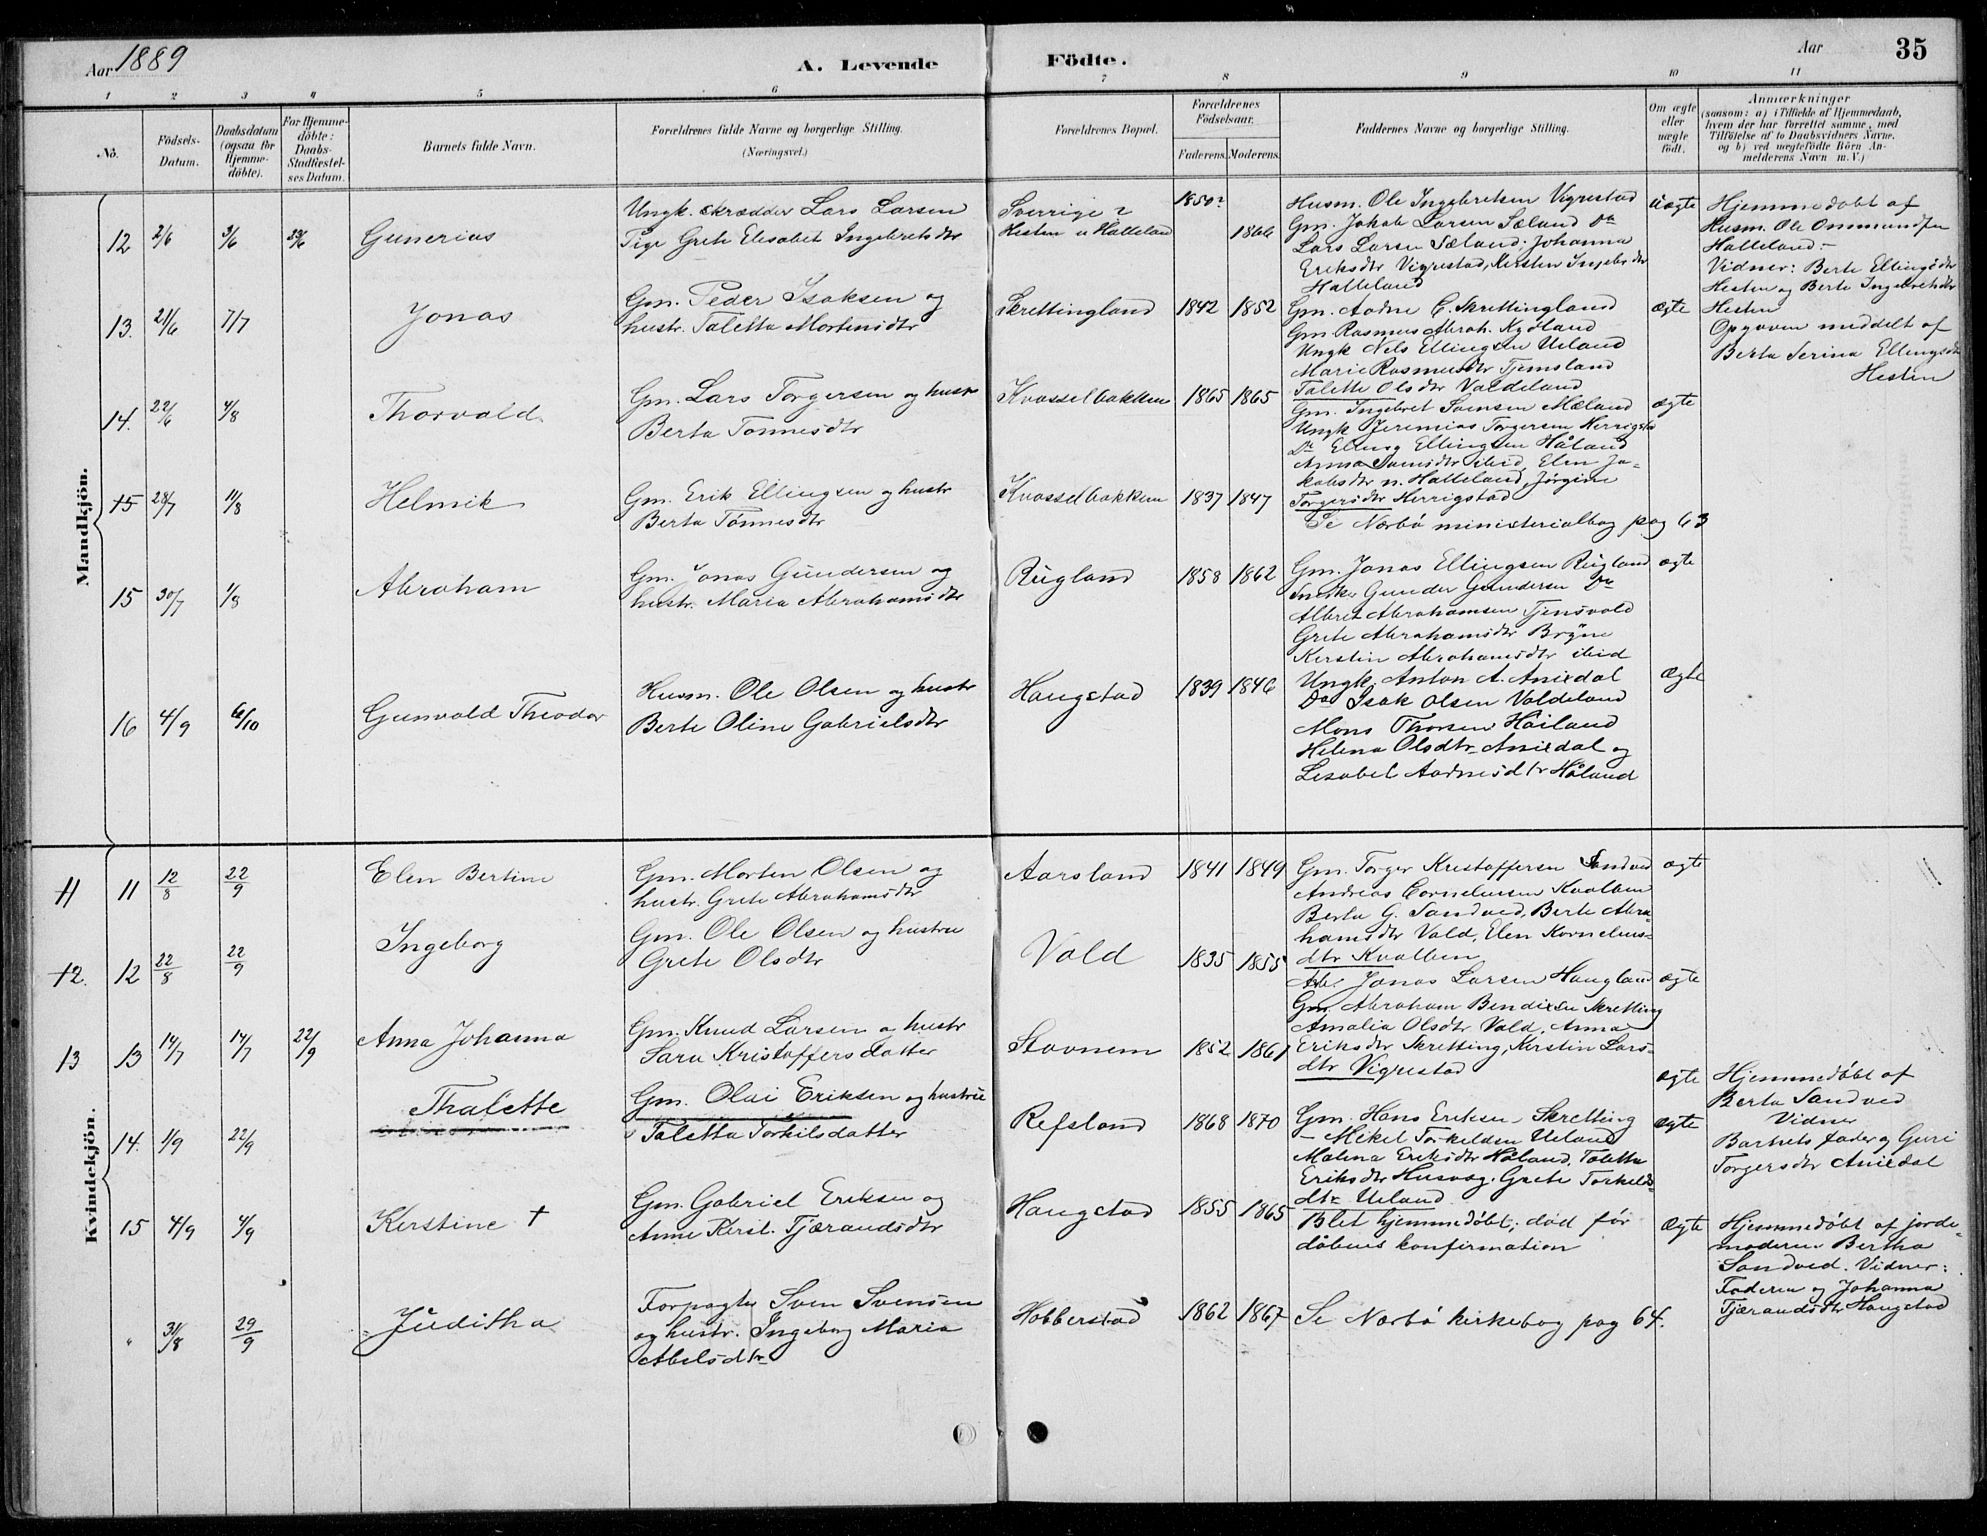 Aar 1889
A. Levende
Födte.
Aar
35
1 2 3 4 5 6 7 8 9 10 11
No.
Födsels-
Datum.
Daabsdatum
(ogsaa for
Hjemme-
döbte).
For Hjemme-
döbte:
Daabs-
Stadfestel-
ses Datum.
Barnets fulde Navn.
Forældrenes fulde Navne og borgerlige Stilling.
(Næringsvei.)
Forældrenes Bopæl.
Forældrenes
Födselsaar.
Faderens. Moderens.
Faddernes Navne og borgerlige Stilling.
Om ægte
eller
uægte
födt.
Anmærkninger
(saasom: a) i Tilfælde af Hjemmedaab,
hvem der har forrettet samme, med
Tilföielse af to Daabsvidners Navne.
og b) ved uægtefödte Börn An-
melderens Navn m. V.)
Mandkjön.
12 2/6 3/6 23/6 Gunerius
Ungk. skrædder Lars Larsen
Pige Grete Elisabet Ingebretsdtr
Sverrige ?
Hesten u Halleland
1850? 1866
Husm. Ole Ingebretsen Vigrestad
Gm. Jakob Larsen Sæland Do
Lars Larsen Sæland; Johanna
Eriksdtr Vigrestad, Kersten Ingebrdtr
Halleland
uægte
Hjemmedøbt af
Husm. Ole Ommundsen
Halleland -
Vidner: Berte Ellingsdtr
Hesten og Berte Ingebretsdtr
Hesten
Opgaven meddelt af
Berta Serina Ellingsdtr
Hesten
13. 21/6 7/7 Jonas
Gm. Peder Isaksen og
hustr. Taletta Mortensdtr
Skrettingland 1842 1852
Gm. Aadne C. Skrettingland
Gm. Rasmus Abrah. Kydland
Ungk Nels Ellingsen Ueland
Marie Rasmusdtr Tjemsland
Talette Olsdtr Valdeland
ægte
14. 22/6 4/8 Thorvald
Gm. Lars Torgersen og hustr
Berta Tønnesdtr
Kvasselbakken 1865 1865
Gm. Ingebret Svensen Mæland
Ungk Jeremias Torgersen Herrigsta
Do Elling Ellingsen Håland
Anna Svensdtr ibid, Elen Ja-
kobsdtr n. Halleland, Jørgine
Torgersdtr Herrigstad
ægte
15 28/7 11/8 Helmik
Gm. Erik Ellingsen og hustr
Berta Tønnesdtr
Kvasselbakken 1837 1847
Se Nærbø ministerialbog pag 63
15 30/7 1/8 Abraham
Gm. Jonas Gundersen og
hustr. Maria Abrahamsdtr
Rugland 1858 1862
Gm. Jonas Ellingsen Rugland
Gunder Gundersen Do
Albret Abrahamsen Tjensvold
Grete Abrahamsdtr Bryne
Kerstin Abrahamsdtr ibid
ægte
16 4/9 6/10 Gunvald Theodor
Husm. Ole Olsen og hustr
Berte Oline Gabrielsdtr
Haugstad 1839 1846
Ungk. Anton A. Anisdal
Do Isak Olsen Valdeland
Mons Thorsen Håiland
Helena Olsdtr Anisdal og
Lisabet Aadnesdtr Håland
Ægte
Kvindekjön.
11 11 12/8 22/9 Elen Bertine
Gm. Morten Olsen og
hustr. Grete Abrahamsdtr
Aarsland 1841 1849
Gm. Torger Kristoffersen Sandved
Andreas Corneliussen Kvalben
Berta G. Sandved, Berte Abra-
hamsdtr Vald, Elen Kornelius-
dtr Kvalben
ægte
12. 12 22/8 22/9 Ingeborg
Gm. Ole Olsen og hustru
Grete Olsdtr
Vald 1835 1855
Arb. Jonas Larsen Haugland
Gm. Abraham Bendixsen Skretting
Amalia Olsdtr Vald, Anna
Eriksdtr Skretting, Kerstin Lars-
dtr Vigrestad
ægte
13 13 14/7 14/7 22/9 Anna Johanna
Gm. Knud Larsen og hustr
Sara Kristoffersdatter
Stavnem 1852 1861
ægte
Hjemmedøbt af
Berta Sandved
Vidner
Barnets fader og Guri
Torgersdtr Anisdal
14. 1/9 22/9 Thalette
Gm. Olai Eriksen og hustrue
Taletta Torkilsdatter
Refsland 1868 1870
Gm. Hans Eriksen Skretting
- Mikel Torkeldsen Ueland
Malena Eriksdtr Håland, Talette
Eriksdtr Husvæg. Grete Torkelds-
dtr Ueland
ægte
15 4/9 4/9 Kerstine †
Gm. Gabriel Eriksen og
Anne Kerst. Tjærandsdtr
Haugstad 1855 1865
Blet hjemmedøbt; død før
dåbens konfirmation
Ægte
Hjemmedøbt af jorde-
moderen Bertha
Sandved. Vidner:
Faderen og Johanna
Tjærandsdtr Haugstad
" 31/8 29/9 Juditha
Forpagter Sven Svensen
og hustr. Ingeborg Maria
Abelsdtr
Hobberstad 1862 1867
Se Nærbø kirkebog pag 64.